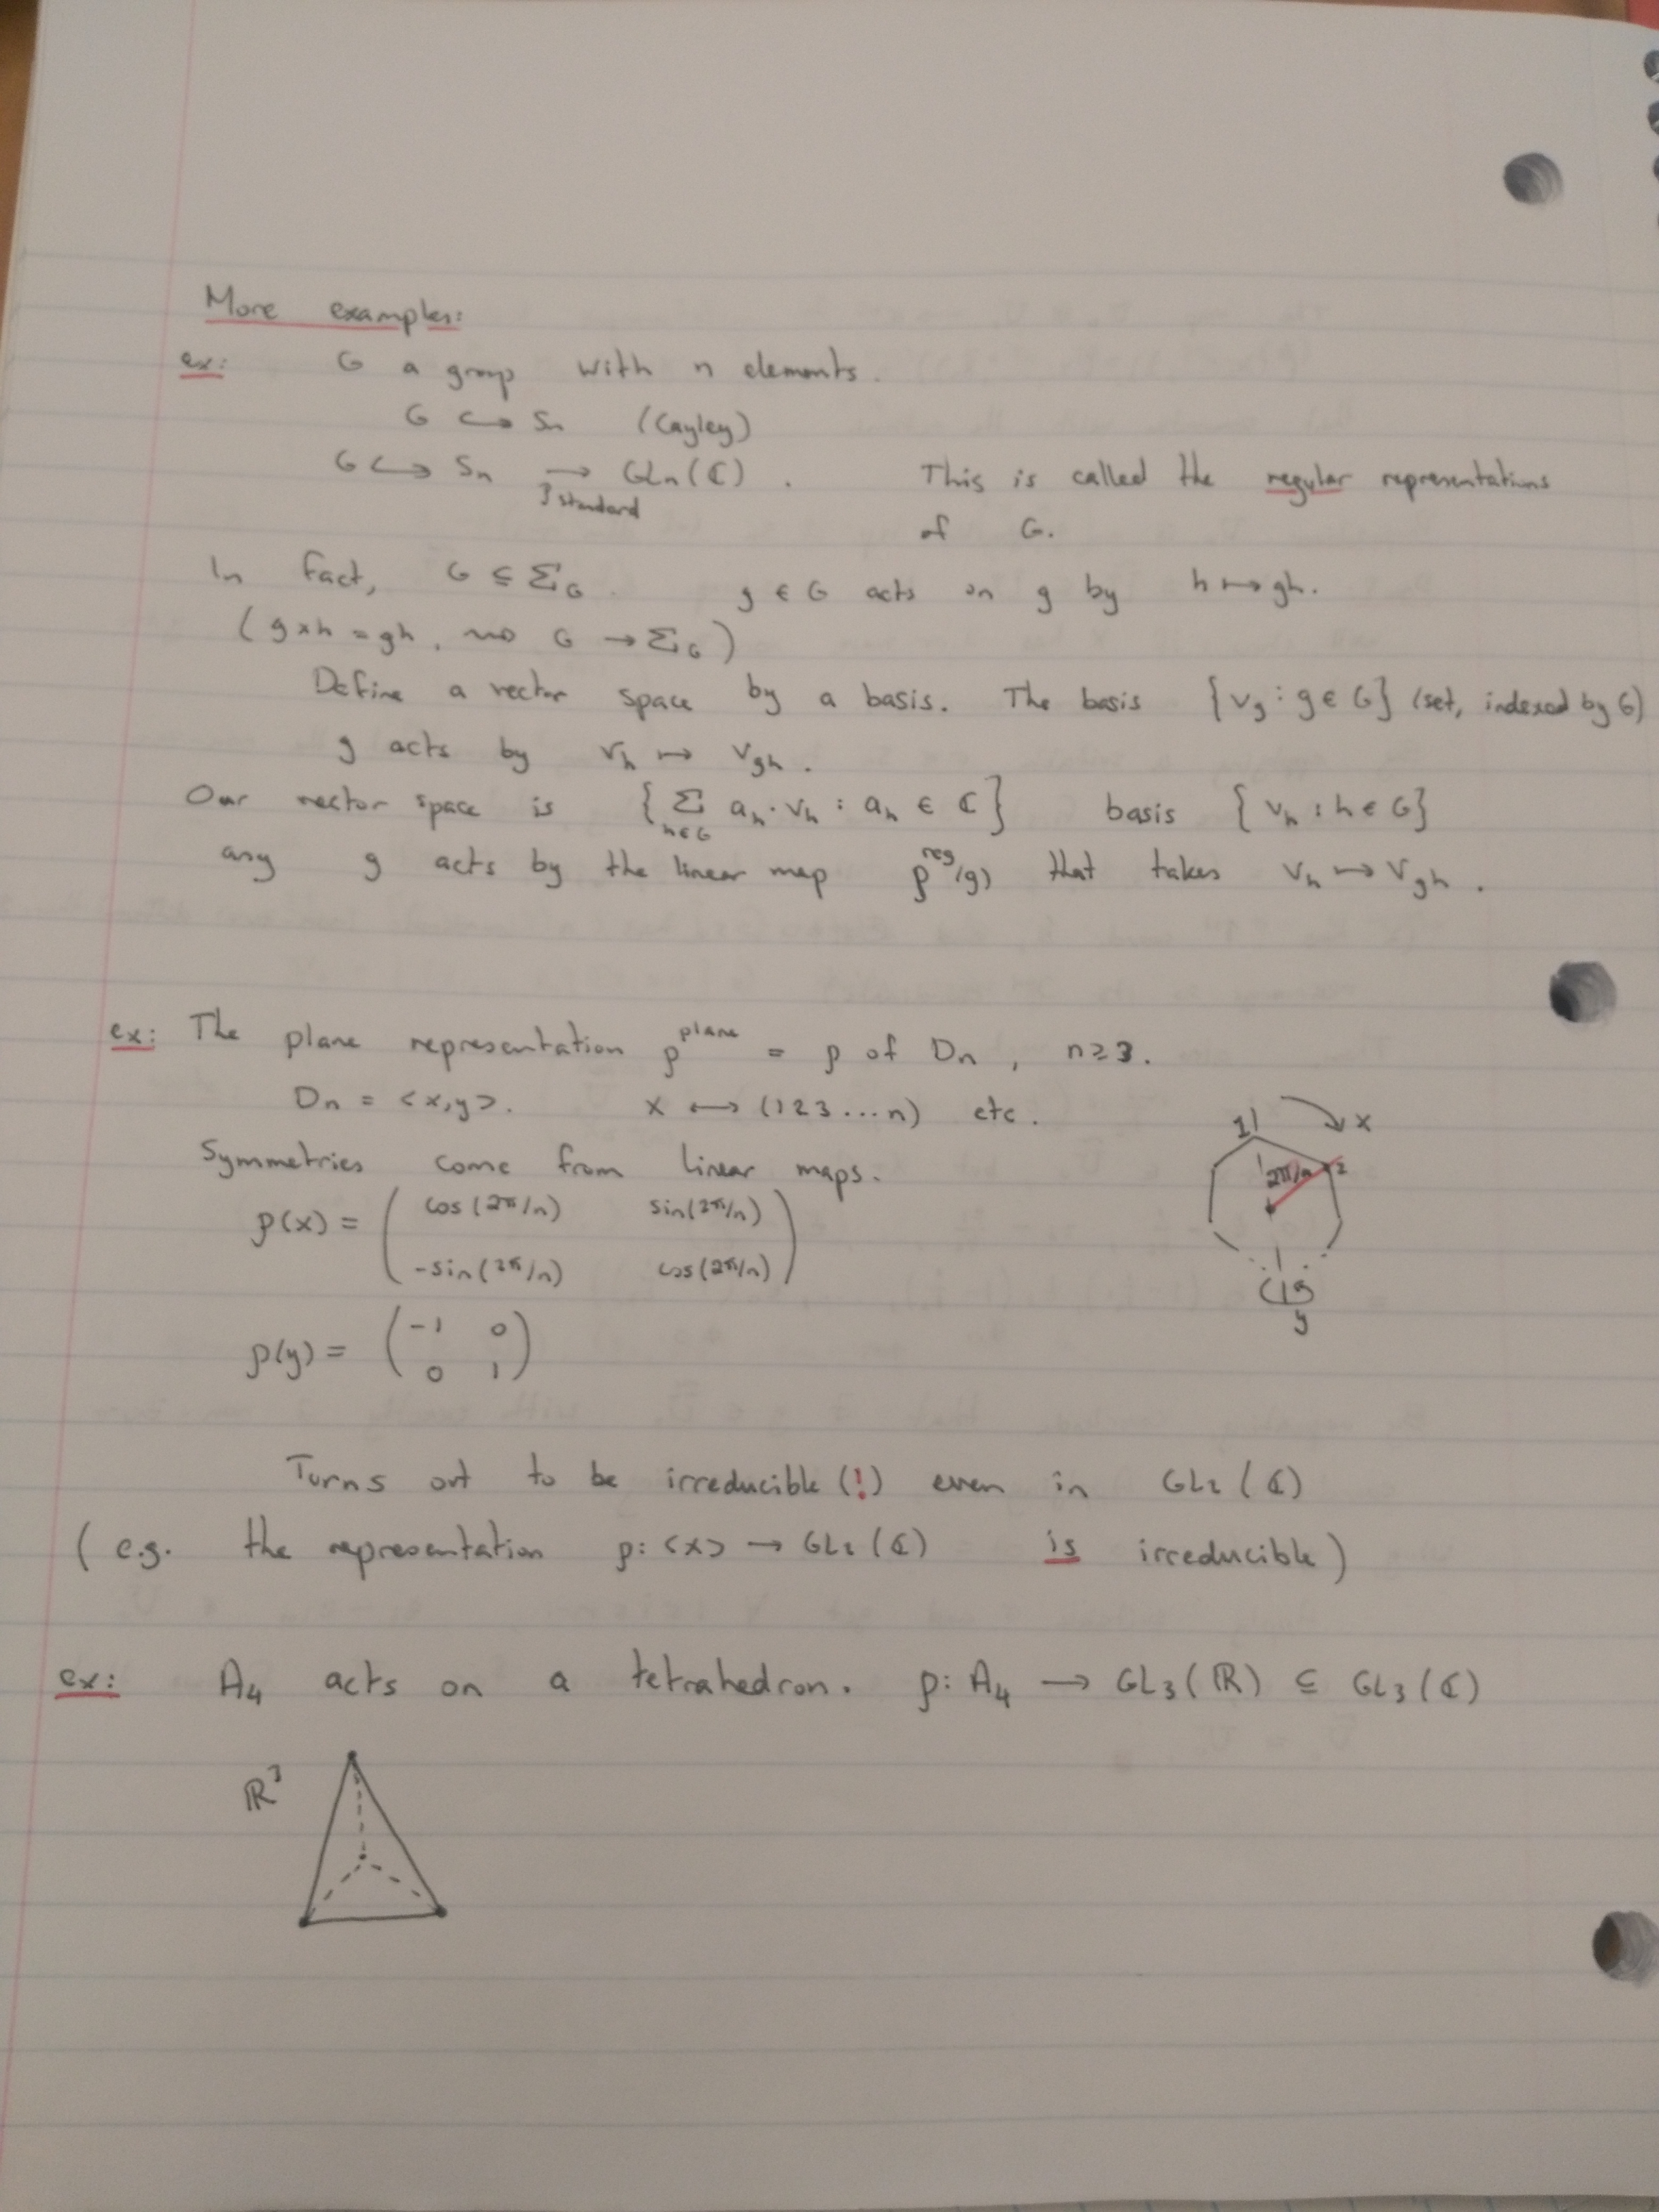 More examples:
ex: G a group with n elements.
G ↪ Sn (Cayley)
G ↪ Sn → GLn(ℂ). This is called the regular representations
ρ standard of G.
In fact, G ⊆ Σ_G. g ∈ G acts on g by h ↦ gh.
(g*h = gh, ⇝ G → Σ_G)
Define a vector space by a basis. The basis {v_g : g ∈ G} (set, indexed by G)
g acts by v_h ↦ v_gh.
Our vector space is {Σ_{h∈G} a_h · v_h : a_h ∈ ℂ} basis {v_h : h ∈ G}
any g acts by the linear map ρ^reg(g) that takes v_h ↦ v_gh.
ex: The plane representation ρ^plane = ρ of Dn, n ≥ 3.
Dn = <x,y>. x ↔ (1 2 3 ... n) etc.
Symmetries come from linear maps.
ρ(x) = ( cos(2π/n) sin(2π/n)
-sin(2π/n) cos(2π/n) )
ρ(y) = ( -1 0
0 1 )
1 x
2π/n 2
y
Turns out to be irreducible (!) even in GL₂(ℂ)
(e.g. the representation ρ: <x> → GL₂(ℂ) is irreducible)
ex: A₄ acts on a tetrahedron. ρ: A₄ → GL₃(ℝ) ⊆ GL₃(ℂ)
ℝ³